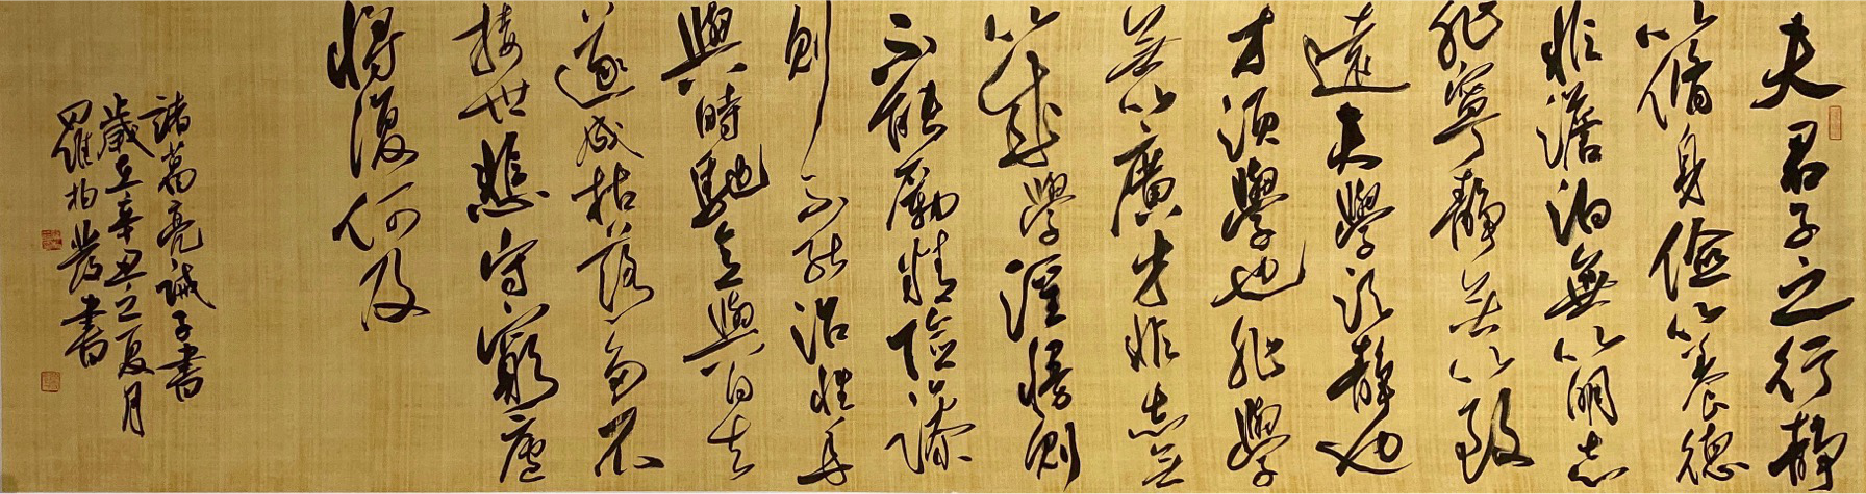 夫君子之行靜
以脩身儉以養德
非澹泊無以明志
非寧靜無以致
遠夫學須靜也
才須學也非學
無以廣才非志無
以成學淫慢則
不能勵精險躁
則不能治性年
與時馳意與日去
遂成枯落多不
接世悲守窮廬
將復何及
諸葛亮誡子書
歲在辛丑之夏月
羅柏書